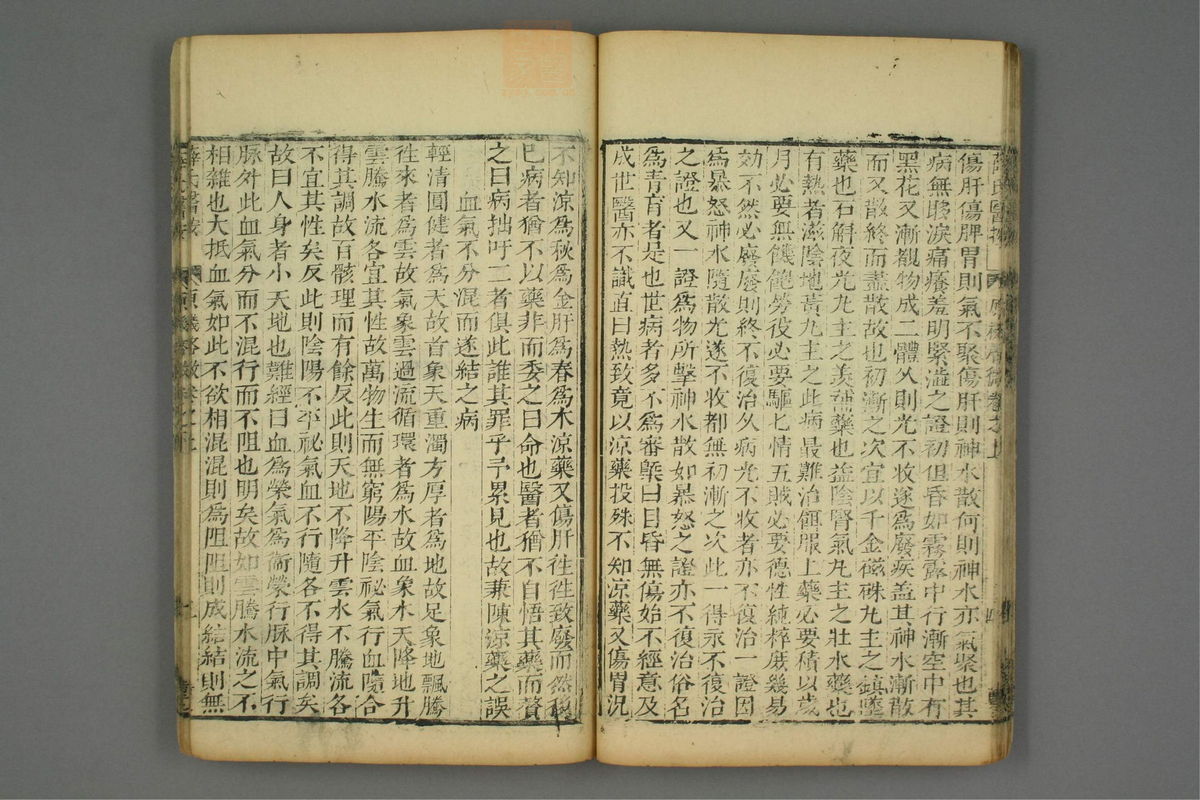 傷肝傷脾胃則氣不聚傷肝則神水散何則神水亦氣聚也其
病無眵淚痛癢羞明緊澁之證初但昏如霧露中行漸空中有
黑花又漸覩物成二體久則光不收遂爲廢疾蓋其神水漸散
而又散終而盡散故也初漸之次宜以千金磁硃丸主之鎮墜
藥也石斛夜光丸主之羡補藥也益陰腎氣丸主之壯水藥也
有熱者滋陰地黃丸主之此病最難治餌服上藥必要積以歲
月必要無饑飽勞役必要驅七情五賊必要德性純粹庶幾易
効不然必廢廢則終不復治久病光不收者亦不復治一證因
爲暴怒神水隨散光遂不收都無初漸之次此一得永不復治
之證也又一證爲物所擊神水散如暴怒之證亦不復治俗名
爲青盲者是也世病者多不爲審槩曰目昏無傷始不經意及
成世醫亦不識直曰熱致竟以涼藥投殊不知涼藥又傷胃況
不知涼爲秋爲金肝爲春爲木涼藥又傷肝徃徃致廢而然後
已病者猶不以藥非而委之曰命也醫者猶不自悟其藥而贅
之曰病拙吁二者俱此誰其罪乎予累見也故兼陳涼藥之誤
血氣不分混而遂結之病
輕清圓健者爲天故首象天重濁方厚者爲地故足象地飄騰
徃來者爲雲故氣象雲過流循環者爲水故血象水天降地升
雲騰水流各宜其性故萬物生而無窮陽平陰祕氣行血隨各
得其調故百骸理而有餘反此則天地不降升雲水不騰流各
不宜其性矣反此則陰陽不平祕氣血不行隨各不得其調矣
故曰人身者小天地也難經曰血爲榮氣爲衞榮行脉中氣行
脉外此血氣分而不混行而不阻也明矣故如雲騰水流之不
相雜也大抵血氣如此不欲相混混則爲阻阻則成結結則無